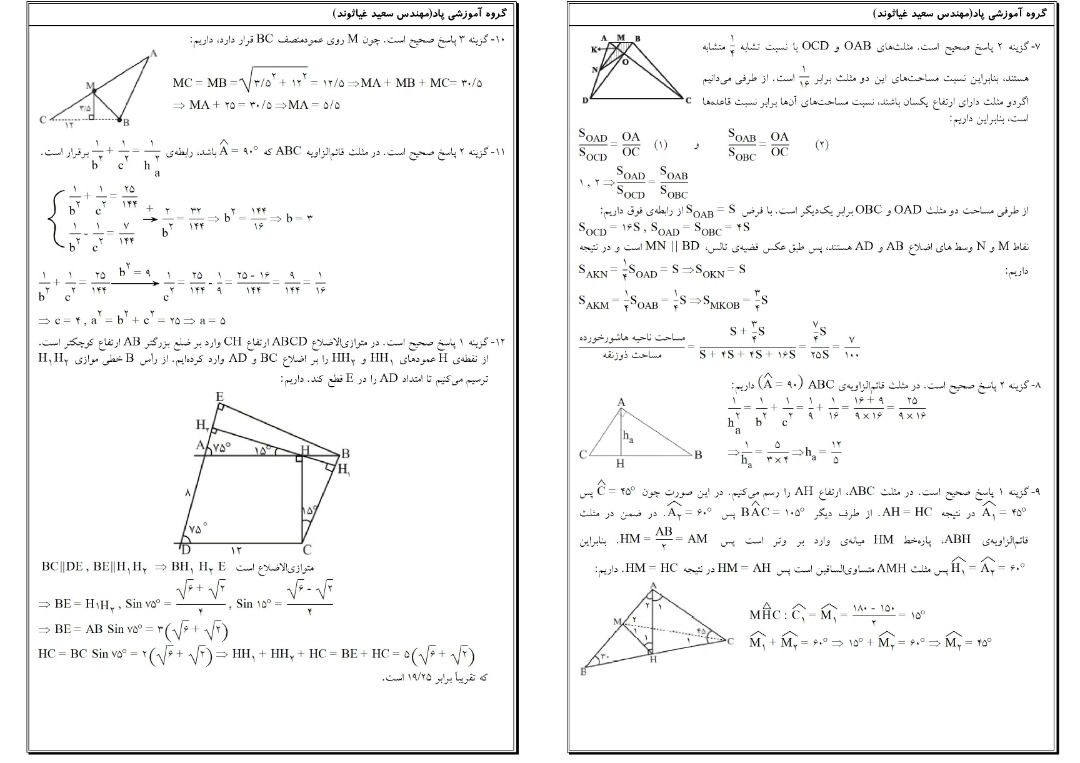 گروه آموزشی پاد(مهندس سعید غیاثوند)
۷- گزینه ۲ پاسخ صحیح است. مثلث‌های OAB و OCD با نسبت تشابه ۱/۴ متشابه
هستند، بنابراین نسبت مساحت‌های این دو مثلث برابر ۱/۱۶ است. از طرفی می‌دانیم
اگر دو مثلث دارای ارتفاع یکسان باشند، نسبت مساحت‌های آن‌ها برابر نسبت قاعده‌ها
است، بنابراین داریم:
A M B
K O
N
D C
S_OAD/S_OCD = OA/OC (۱) و S_OAB/S_OBC = OA/OC (۲)
۱ , ۲ ⇒ S_OAD/S_OCD = S_OAB/S_OBC
از طرفی مساحت دو مثلث OAD و OBC برابر یک‌دیگر است. با فرض S_OAB = S از رابطه‌ی فوق داریم:
S_OCD = ۱۶S , S_OAD = S_OBC = ۴S
نقاط M و N وسط های اضلاع AB و AD هستند، پس طبق عکس قضیه‌ی تالس، MN || BD است و در نتیجه
داریم:
S_AKN = ۱/۴ S_OAD = S ⇒ S_OKN = S
S_AKM = ۱/۴ S_OAB = ۱/۴ S ⇒ S_MKOB = ۳/۴ S
مساحت ناحیه هاشورخورده/مساحت ذوزنقه = (S + ۳/۴ S)/(S + ۴S + ۴S + ۱۶S) = (۷/۴ S)/۲۵S = ۷/۱۰۰
۸- گزینه ۲ پاسخ صحیح است. در مثلث قائم‌الزاویه‌ی ABC (Â = ۹۰) داریم:
۱/h_a² = ۱/b² + ۱/c² = ۱/۹ + ۱/۱۶ = (۱۶ + ۹)/(۹ × ۱۶) = ۲۵/(۹ × ۱۶)
⇒ ۱/h_a = ۵/(۳ × ۴) ⇒ h_a = ۱۲/۵
A
h_a
C H B
۹- گزینه ۱ پاسخ صحیح است. در مثلث ABC، ارتفاع AH را رسم می‌کنیم. در این صورت چون Ĉ = ۴۵° پس
Â₁ = ۴۵° در نتیجه AH = HC. از طرف دیگر BÂC = ۱۰۵° پس Â₂ = ۶۰°. در ضمن در مثلث
قائم‌الزاویه‌ی ABH، پاره‌خط HM میانه‌ی وارد بر وتر است پس HM = AB/۲ = AM. بنابراین
Ĥ₁ = Â₂ = ۶۰° پس مثلث AMH متساوی‌الساقین است پس HM = AH در نتیجه HM = HC. داریم:
MHC : Ĉ₁ = M̂₁ = (۱۸۰ - ۱۵۰)/۲ = ۱۵°
M̂₁ + M̂₂ = ۶۰° ⇒ ۱۵° + M̂₂ = ۶۰° ⇒ M̂₂ = ۴۵°
A
۲ ۱
M ۲ ۱
۴۵ ۱ C
۳۰ ۱
B H
گروه آموزشی پاد(مهندس سعید غیاثوند)
۱۰- گزینه ۳ پاسخ صحیح است. چون M روی عمودمنصف BC قرار دارد، داریم:
MC = MB = √(۳/۵² + ۱۲²) = ۱۲/۵ ⇒ MA + MB + MC = ۳۰/۵
⇒ MA + ۲۵ = ۳۰/۵ ⇒ MA = ۵/۵
A
M
۳/۵
C ۱۲ B
۱۱- گزینه ۲ پاسخ صحیح است. در مثلث قائم‌الزاویه ABC که Â = ۹۰° باشد، رابطه‌ی ۱/b² + ۱/c² = ۱/h_a² برقرار است.
{ ۱/b² + ۱/c² = ۲۵/۱۴۴
۱/b² - ۱/c² = ۷/۱۴۴ + → ۲/b² = ۳۲/۱۴۴ ⇒ b² = ۱۴۴/۱۶ ⇒ b = ۳
۱/b² + ۱/c² = ۲۵/۱۴۴ b² = ۹ → ۱/c² = ۲۵/۱۴۴ - ۱/۹ = (۲۵ - ۱۶)/۱۴۴ = ۹/۱۴۴ = ۱/۱۶
⇒ c = ۴ , a² = b² + c² = ۲۵ ⇒ a = ۵
۱۲- گزینه ۱ پاسخ صحیح است. در متوازی‌الاضلاع ABCD ارتفاع CH وارد بر ضلع بزرگتر AB ارتفاع کوچکتر است.
از نقطه‌ی H عمودهای HH₁ و HH₂ را بر اضلاع BC و AD وارد کرده‌ایم. از رأس B خطی موازی H₁H₂
ترسیم می‌کنیم تا امتداد AD را در E قطع کند. داریم:
E
H₂
A ۷۵° ۱۵° H B
H₁
۸ ۱۵°
۷۵°
D ۱۲ C
BC||DE , BE||H₁H₂ ⇒ BH₁H₂E متوازی‌الاضلاع است
⇒ BE = H₁H₂ , Sin ۷۵° = (√۶ + √۲)/۴ , Sin ۱۵° = (√۶ - √۲)/۴
⇒ BE = AB Sin ۷۵° = ۳(√۶ + √۲)
HC = BC Sin ۷۵° = ۲(√۶ + √۲) ⇒ HH₁ + HH₂ + HC = BE + HC = ۵(√۶ + √۲)
که تقریباً برابر ۱۹/۲۵ است.